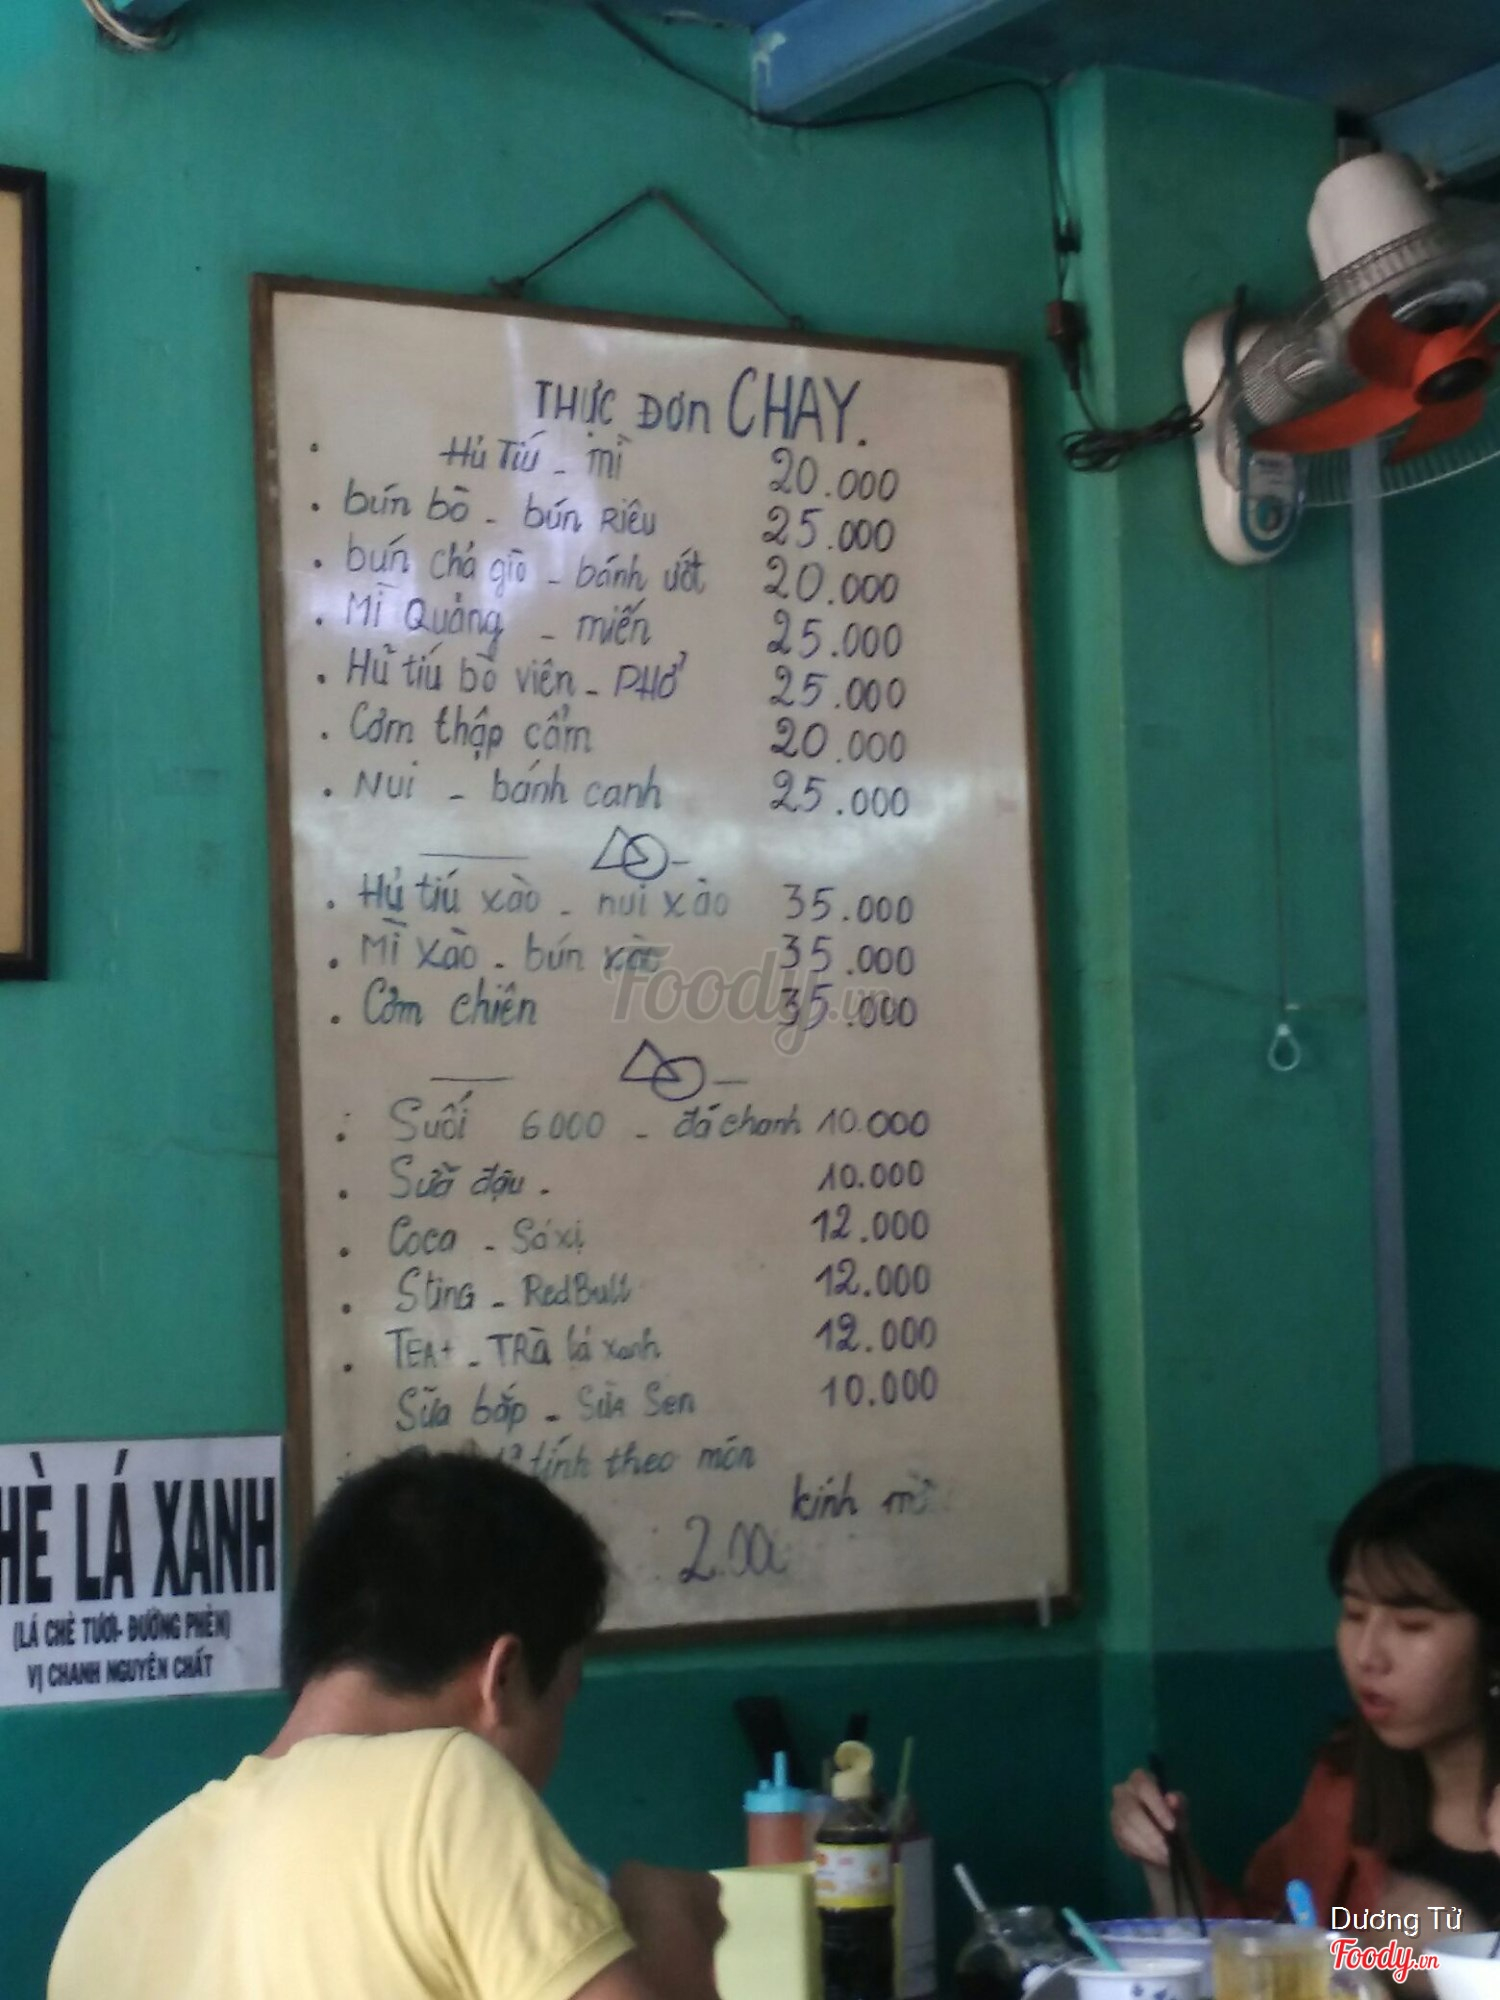 THỰC ĐƠN CHAY.
. Hủ Tiú - mì 20.000
. bún bò - bún Riêu 25.000
. bún chả giò - bánh ướt 20.000
. Mì Quảng - miến 25.000
. Hủ tiú bò viên - PHở 25.000
. Cơm thập cẩm 20.000
. Nui - bánh canh 25.000
. Hủ tiú xào - nui xào 35.000
. Mì xào - bún xào 35.000
. Cơm chiên 35.000
. Suối 6000 - đá chanh 10.000
. Sữa đậu - 10.000
. Coca - Sá xị 12.000
. Sting - RedBull 12.000
. TEA+ - TRà lá xanh 12.000
Sữa bắp - Sữa Sen 10.000
tính theo món
kính mờ
2.000
HÈ LÁ XANH
(LÁ CHÈ TƯƠI- ĐƯỜNG PHÈN)
VỊ CHANH NGUYÊN CHẤT
Foody.vn
Dương Tử
Foody.vn